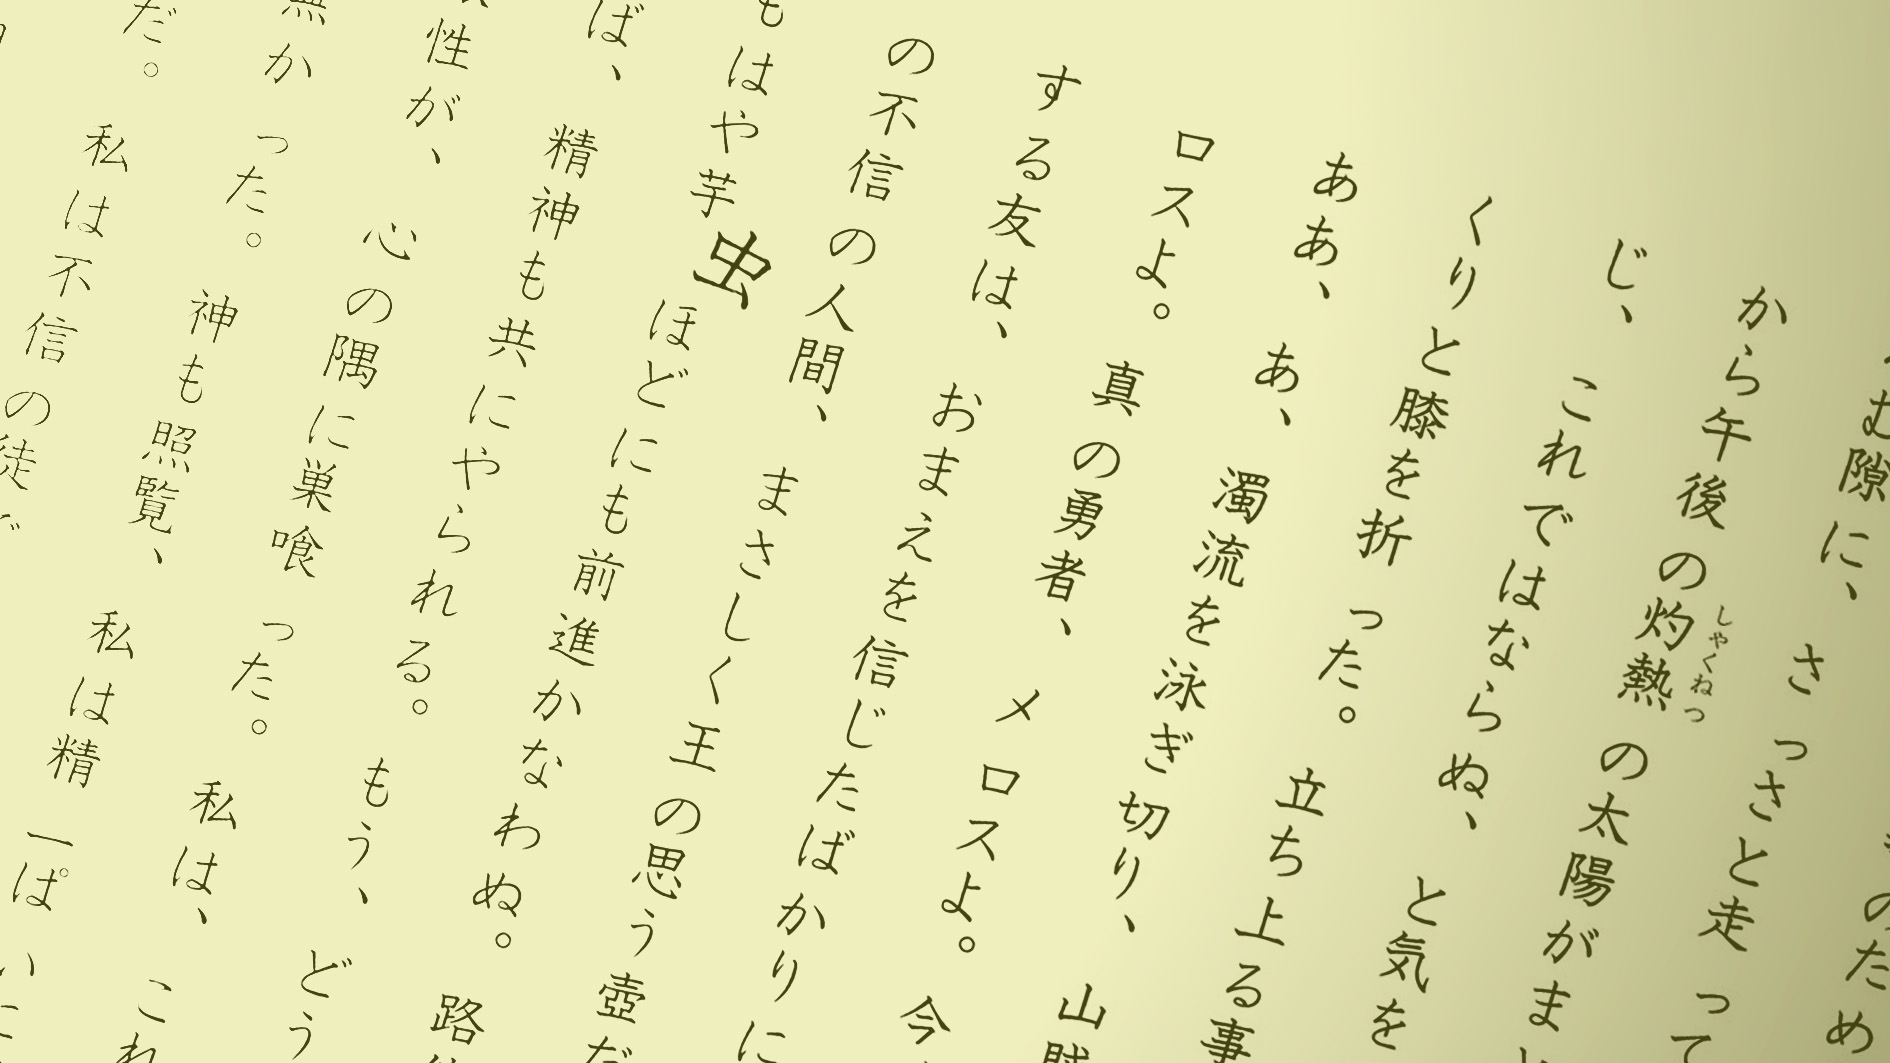 のため
む隙に、さっさと走って
から午後の灼熱の太陽がま
しゃくねつ
じ、これではならぬ、と気を
くりと膝を折った。立ち上る事
ああ、あ、濁流を泳ぎ切り、山賊
ロスよ。真の勇者、メロスよ。今
する友は、おまえを信じたばかりに
の不信の人間、まさしく王の思う壺だ
もはや芋虫ほどにも前進かなわぬ。路
ば、精神も共にやられる。もう、どう
性が、心の隅に巣喰った。私は、これ
無かった。神も照覧、私は精一ぱいに
だ。私は不信の徒で